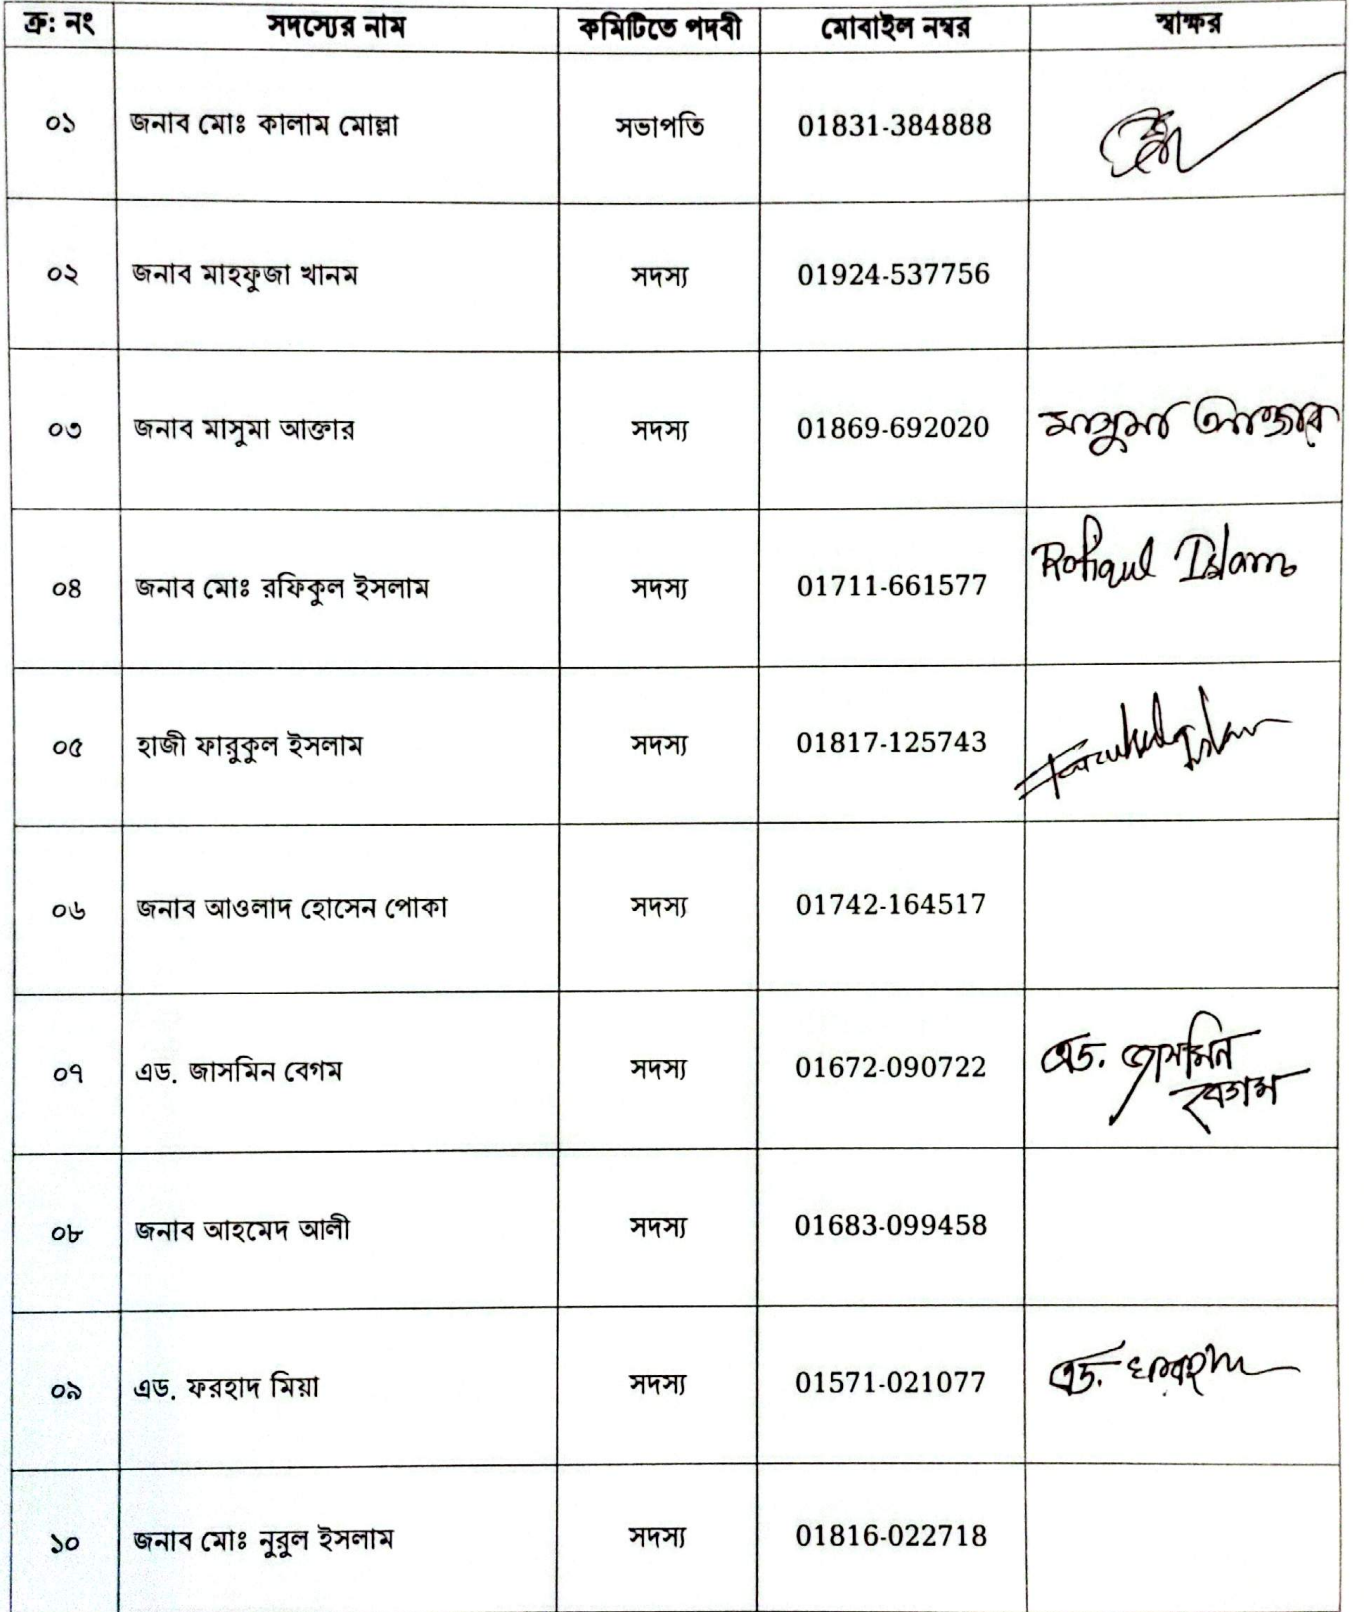 ক্র: নং সদস্যের নাম কমিটিতে পদবী মোবাইল নম্বর স্বাক্ষর
০১ জনাব মোঃ কালাম মোল্লা সভাপতি 01831-384888
০২ জনাব মাহফুজা খানম সদস্য 01924-537756
০৩ জনাব মাসুমা আক্তার সদস্য 01869-692020 মাসুমা আক্তার
০৪ জনাব মোঃ রফিকুল ইসলাম সদস্য 01711-661577 Rofiqul Islam
০৫ হাজী ফারুকুল ইসলাম সদস্য 01817-125743
০৬ জনাব আওলাদ হোসেন পোকা সদস্য 01742-164517
০৭ এড. জাসমিন বেগম সদস্য 01672-090722 এড. জাসমিন
বেগম
০৮ জনাব আহমেদ আলী সদস্য 01683-099458
০৯ এড. ফরহাদ মিয়া সদস্য 01571-021077 এড.
১০ জনাব মোঃ নুরুল ইসলাম সদস্য 01816-022718